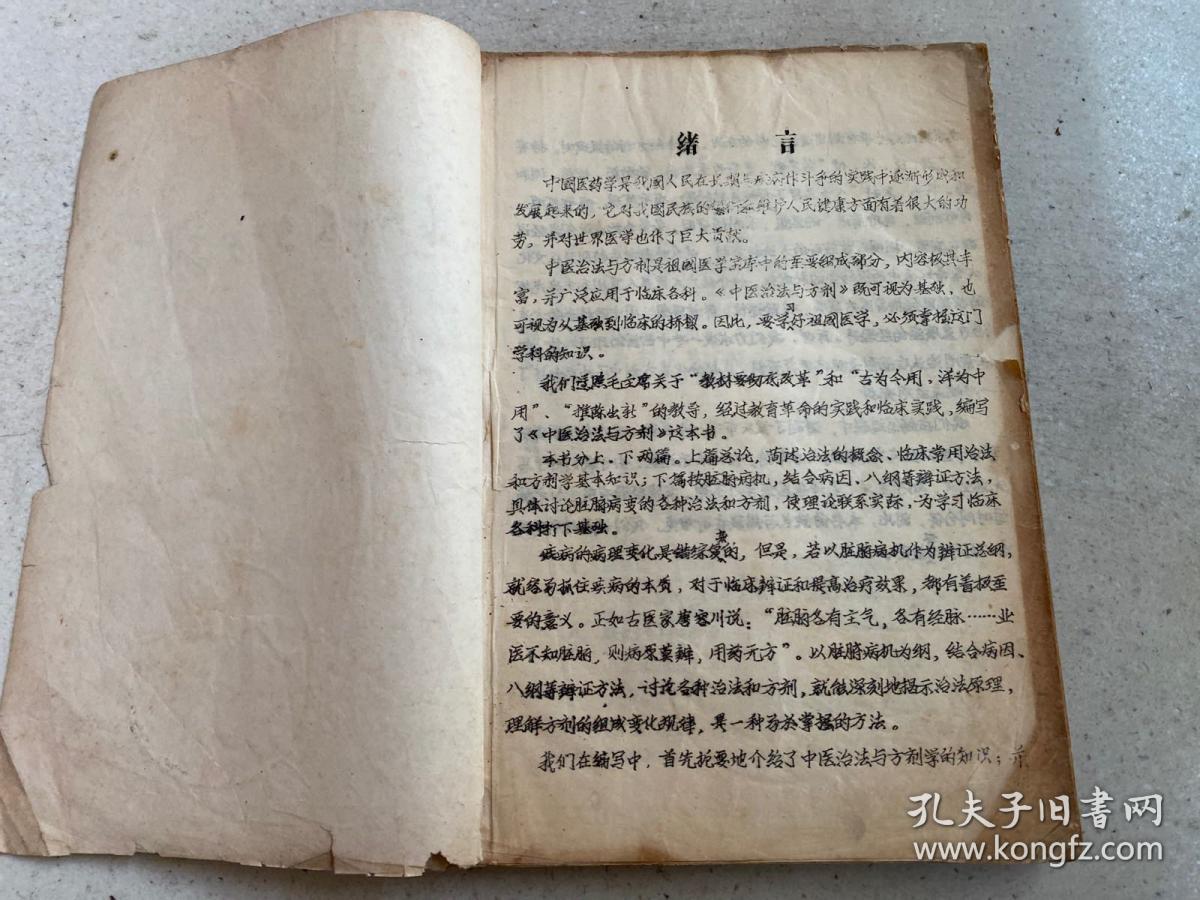 绪 言
中国医药学是我国人民在长期与疾病作斗争的实践中逐渐形成和
发展起来的，它对我国民族的繁衍和维护人民健康方面有着很大的功
劳，并对世界医学也作了巨大贡献。
中医治法与方剂是祖国医学宝库中的至要组成部分，内容极其丰
富，并广泛应用于临床各科。《中医治法与方剂》既可视为基础，也
可视为从基础到临床的桥梁。因此，要学习好祖国医学，必须掌握这门
学科的知识。
我们遵照毛主席关于“教材要彻底改革”和“古为今用，洋为中
用”、“推陈出新”的教导，经过教育革命的实践和临床实践，编写
了《中医治法与方剂》这本书。
本书分上、下两篇。上篇总论，简述治法的概念、临床常用治法
和方剂学基本知识；下篇按脏腑病机，结合病因、八纲等辨证方法，
具体讨论脏腑病变的各种治法和方剂，使理论联系实际，为学习临床
各科打下基础。
疾病的病理变化是错综复杂的，但是，若以脏腑病机作为辨证总纲，
就容易抓住疾病的本质，对于临床辨证和提高治疗效果，都有着极至
要的意义。正如古医家唐容川说：“脏腑各有主气，各有经脉……业
医不知脏腑，则病原莫辨，用药无方”。以脏腑病机为纲，结合病因、
八纲等辨证方法，讨论各种治法和方剂，就能深刻地揭示治法原理，
理解方剂的组成变化规律，是一种易于掌握的方法。
我们在编写中，首先扼要地介绍了中医治法与方剂学的知识；并
孔夫子旧书网
www.kongfz.com